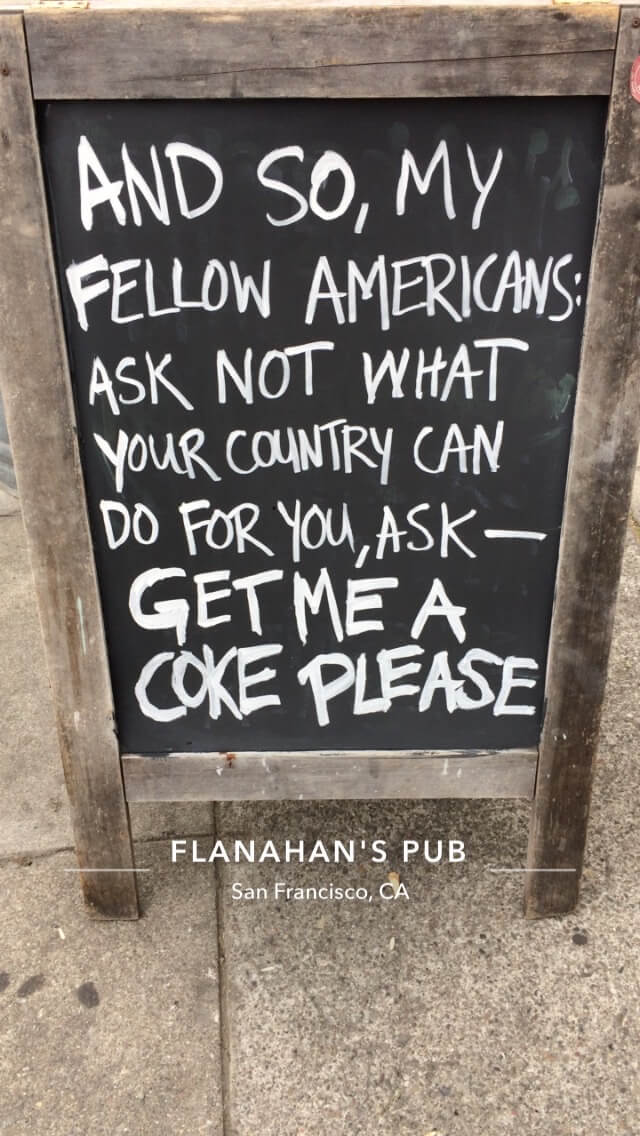 AND SO, MY
FELLOW AMERICANS:
ASK NOT WHAT
YOUR COUNTRY CAN
DO FOR YOU, ASK—
GET ME A
COKE PLEASE
FLANAHAN'S PUB
San Francisco, CA